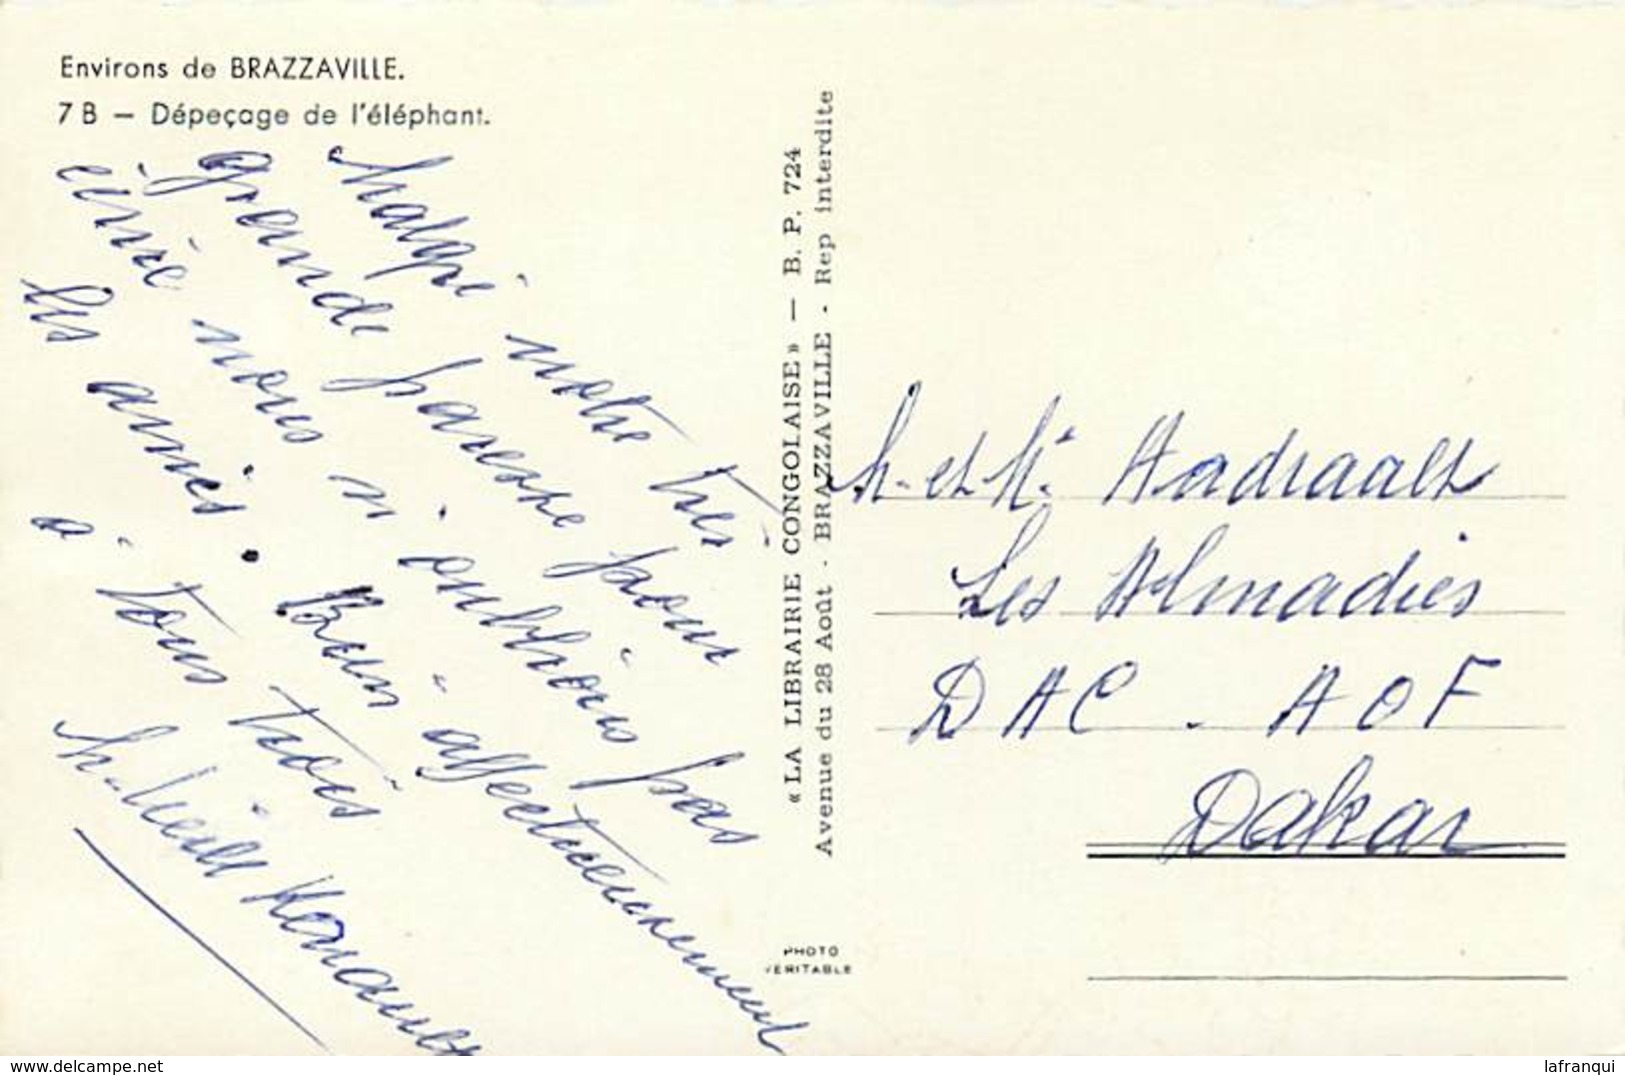 Environs de BRAZZAVILLE.
7 B — Dépeçage de l'éléphant.
Malgré notre très
grande paresse pour
écrire nous n'oublions pas
les amies. Bien affectueusement
à tous trois
« LA LIBRAIRIE CONGOLAISE » — B. P. 724
Avenue du 28 Août - BRAZZAVILLE - Rep interdite
PHOTO
VERITABLE
M. et Me
Les Almadies
DAC - AOF
Dakar
lafranqui